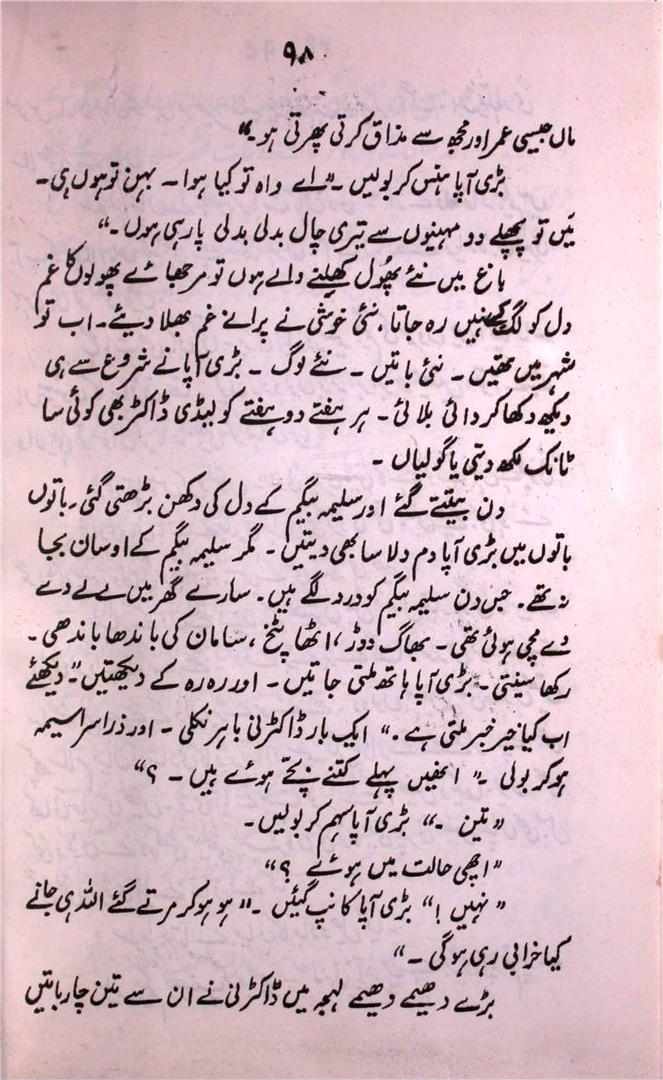 ۹۸
ماں جیسی عمر اور مجھ سے مذاق کرتی پھرتی ہو۔“
بڑی آپا ہنس کر بولیں ۔ ”اے واہ تو کیا ہوا ۔ بہن تو ہوں ہی ۔
میں تو پچھلے دو مہینوں سے تیری چال بدلی بدلی پا رہی ہوں ۔“
باغ میں نئے پھُول کھلنے والے ہوں تو مرجھائے پھولوں کا غم
دل کو لگ کے نہیں رہ جاتا، نئی خوشی نے پرانے غم بھلا دیئے۔ اب تو
شہر میں تھیں ۔ نئی باتیں ۔ نئے لوگ ۔ بڑی آپا نے شروع سے ہی
دیکھ دکھا کر دائی بلائی ۔ ہر ہفتے دو ہفتے کو لیڈی ڈاکٹر بھی کوئی سا
ٹانک لکھ دیتی یا گولیاں ۔
دن بیتتے گئے اور سلیمہ بیگم کے دل کی دکھن بڑھتی گئی۔ باتوں
باتوں میں بڑی آپا دم دلاسا بھی دیتیں ۔ مگر سلیمہ بیگم کے اوسان بجا
نہ تھے ۔ جس دن سلیمہ بیگم کو درد لگے ہیں ۔ سارے گھر میں لے لے دے
دے مچی ہوئی تھی ۔ بھاگ دوڑ ، اٹھا پٹخ ، سامان کی باندھا باندھی ۔
رکھا سینتی ۔ بڑی آپا ہاتھ ملتی جاتیں ۔ اور رہ رہ کے دیکھتیں ”۔ دیکھئے
اب کیا خیر خبر ملتی ہے ۔“ ایک بار ڈاکٹرنی باہر نکلی ۔ اور ذرا سراسیمہ
ہو کر بولی ۔ ” انھیں پہلے کتنے بچے ہوئے ہیں ۔ ؟“
”تین ۔“ بڑی آپا سہم کر بولیں۔
”اچھی حالت میں ہوئے ؟“
”نہیں !“ بڑی آپا کانپ گئیں ۔ ”ہو ہو کر مرتے گئے اللہ ہی جانے
کیا خرابی رہی ہو گی ۔“
بڑے دھیمے دھیمے لہجہ میں ڈاکٹرنی نے ان سے تین چار باتیں